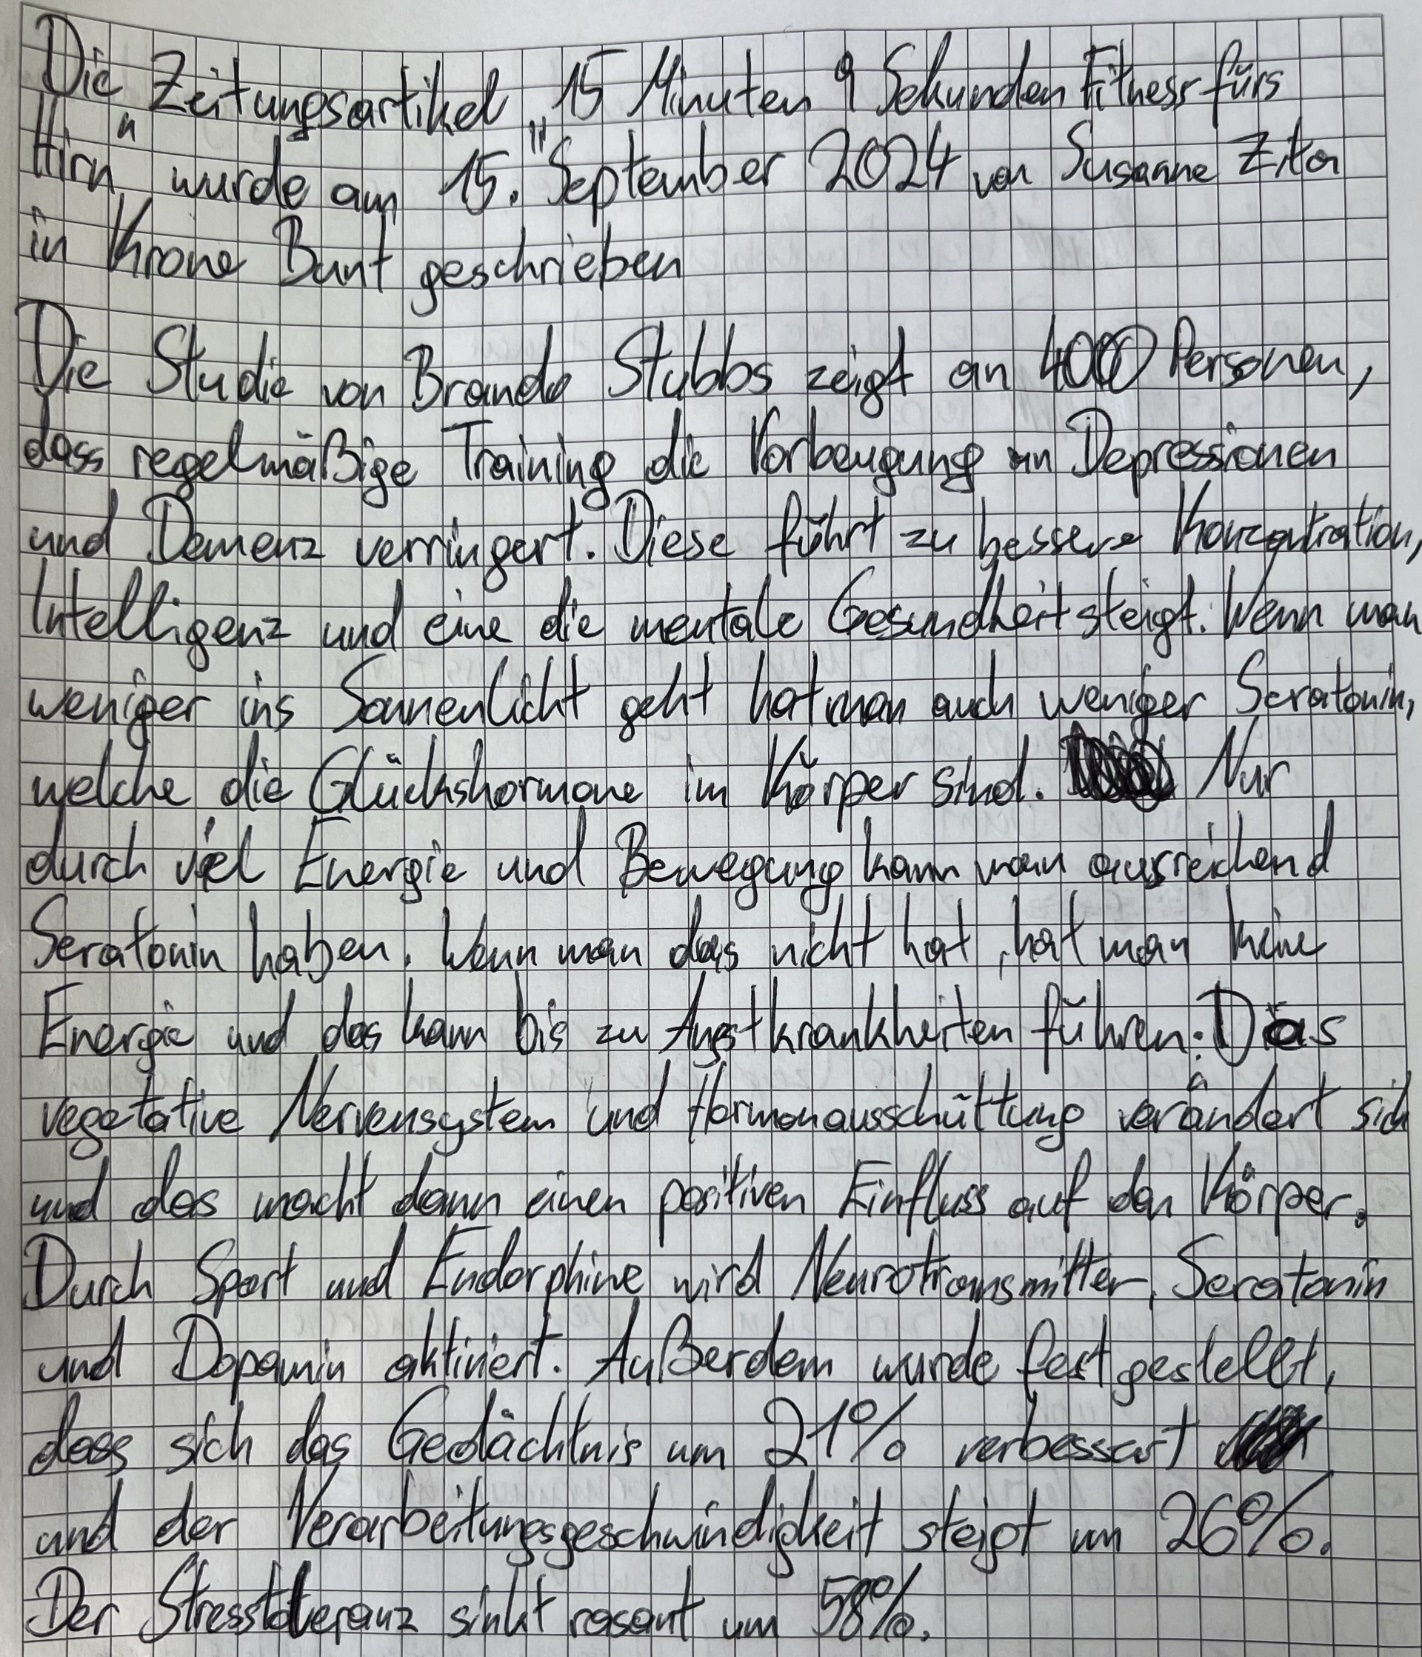 Die Zeitungsartikel „15 Minuten 9 Sekunden Fitness fürs
Hirn" wurde am 15. September 2024 von Susanne Zita
in Krone Bunt geschrieben
Die Studie von Brando Stubbs zeigt an 4000 Personen,
dass regelmäßige Training die Vorbeugung an Depressionen
und Demenz verringert. Diese führt zu bessere Konzentration,
Intelligenz und eine die mentale Gesundheit steigt. Wenn man
weniger ins Sonnenlicht geht hat man auch weniger Seratonin,
welche die Glückshormone im Körper sind. Nur
durch viel Energie und Bewegung kann man ausreichend
Seratonin haben. Wenn man das nicht hat, hat man keine
Energie und das kann bis zu Angstkrankheiten führen. Das
vegetative Nervensystem und Hormonausschüttung verändert sich
und das macht dann einen positiven Einfluss auf den Körper.
Durch Sport und Endorphine wird Neurotransmitter, Seratonin
und Dopamin aktiviert. Außerdem wurde festgestellt,
dass sich das Gedächtnis um 21% verbessert
und der Verarbeitungsgeschwindigkeit steigt um 26%.
Der Stresstoleranz sinkt rasant um 58%.